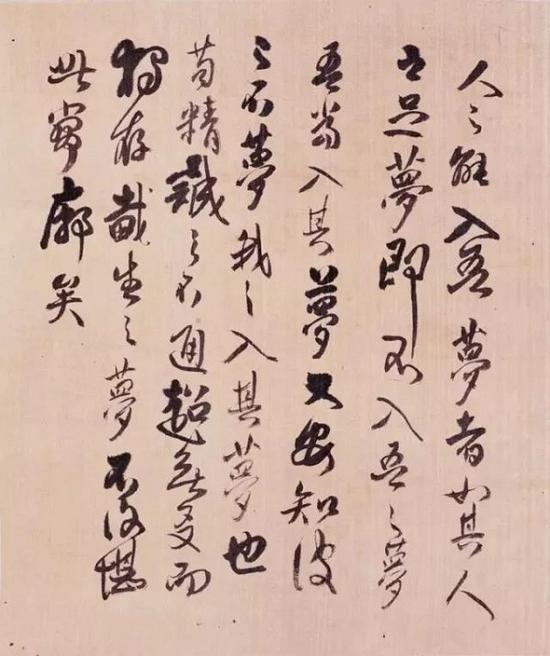 人之能入吾夢者如其人
之足夢即不入吾之夢
吾當入其夢又安知彼
之不夢我之入其夢也
苟精誠之不通超無友而
獨存生之夢不復堪
此寥廓矣